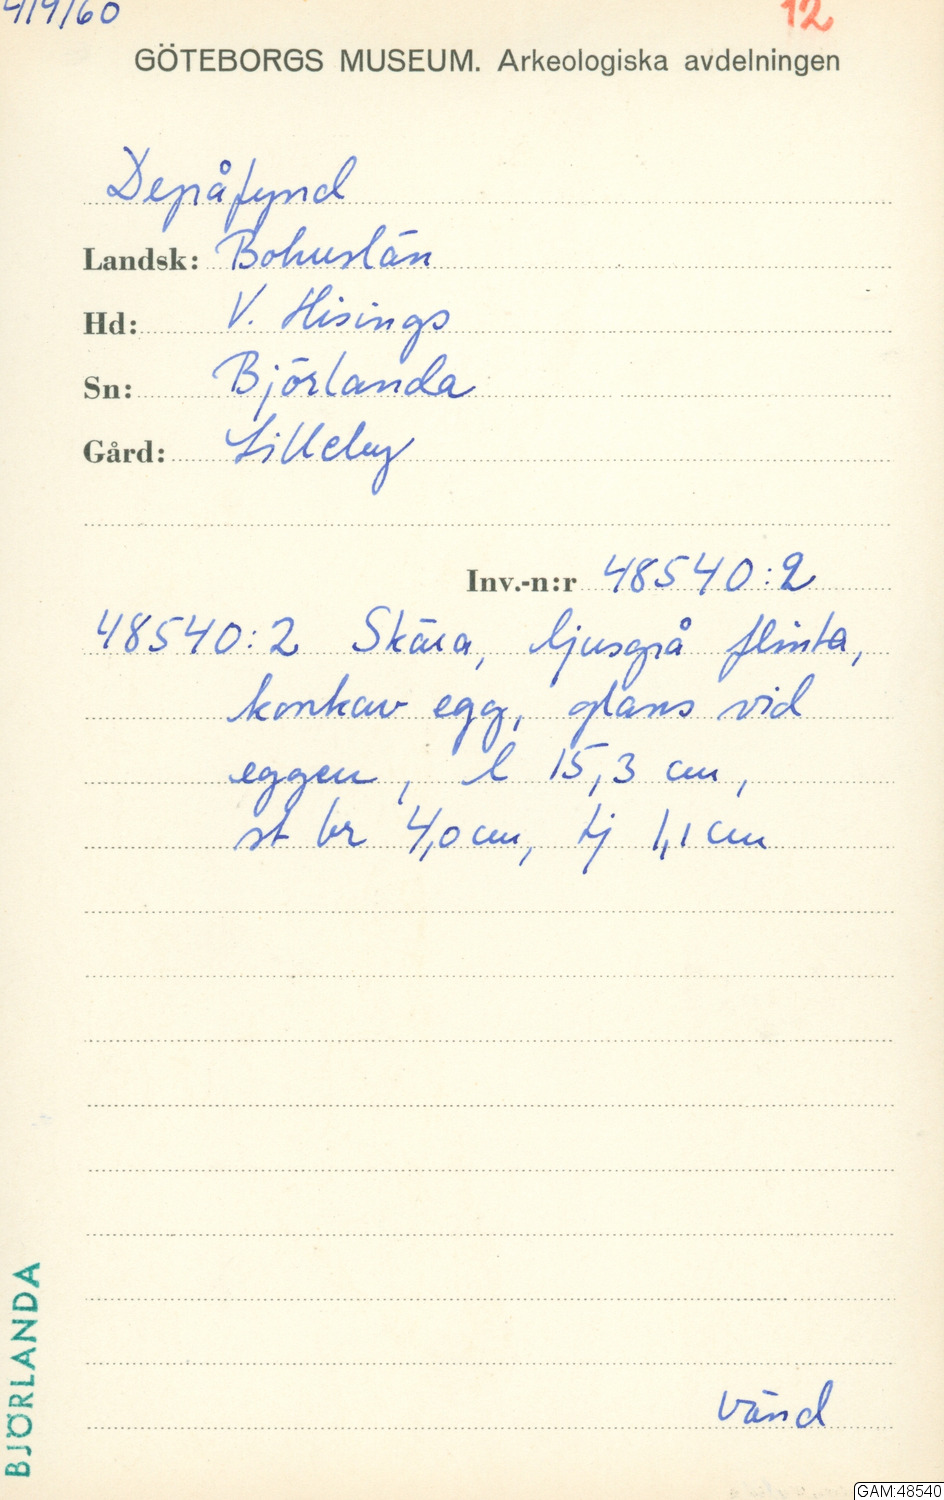 4/9/60
12
GÖTEBORGS MUSEUM. Arkeologiska avdelningen
Depåfynd
Landsk: Bohuslän
Hd: V. Hisings
Sn: Björlanda
Gård: Lilleby
Inv.-n:r 48540:2
48540:2 Skära, ljusgrå flinta,
konkav egg, glans vid
eggen, l 15,3 cm,
st br 4,0 cm, tj 1,1 cm
BJÖRLANDA
Vänd
GAM:48540